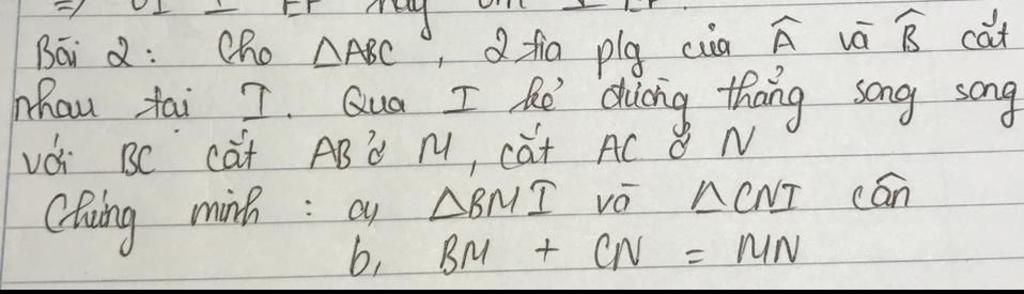 => OI ⊥ EF hay OM ⊥ EF.
Bài 2: Cho △ABC, 2 tia plg của Â và B̂ cắt
nhau tại I. Qua I kẻ đường thẳng song song
với BC cắt AB ở M, cắt AC ở N
Chứng minh: a, △BMI và △CNI cân
b, BM + CN = MN